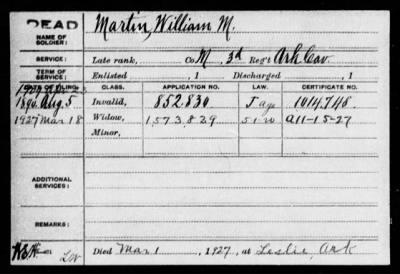 DEAD
NAME OF SOLDIER: Martin, William M.
SERVICE: Late rank, Co. M, 3d Reg't Ark Cav
TERM OF SERVICE: Enlisted , 1 Discharged , 1
DATE OF FILING. CLASS. APPLICATION NO. LAW. CERTIFICATE NO.
1890 Aug. 5 Invalid, 852,830 J 1014,748
1927 Mar 18 Widow, 1573,829 A11-15-27
Minor,
ADDITIONAL SERVICES:
REMARKS:
Died Mar 1, 1927, at Leslie, Ark